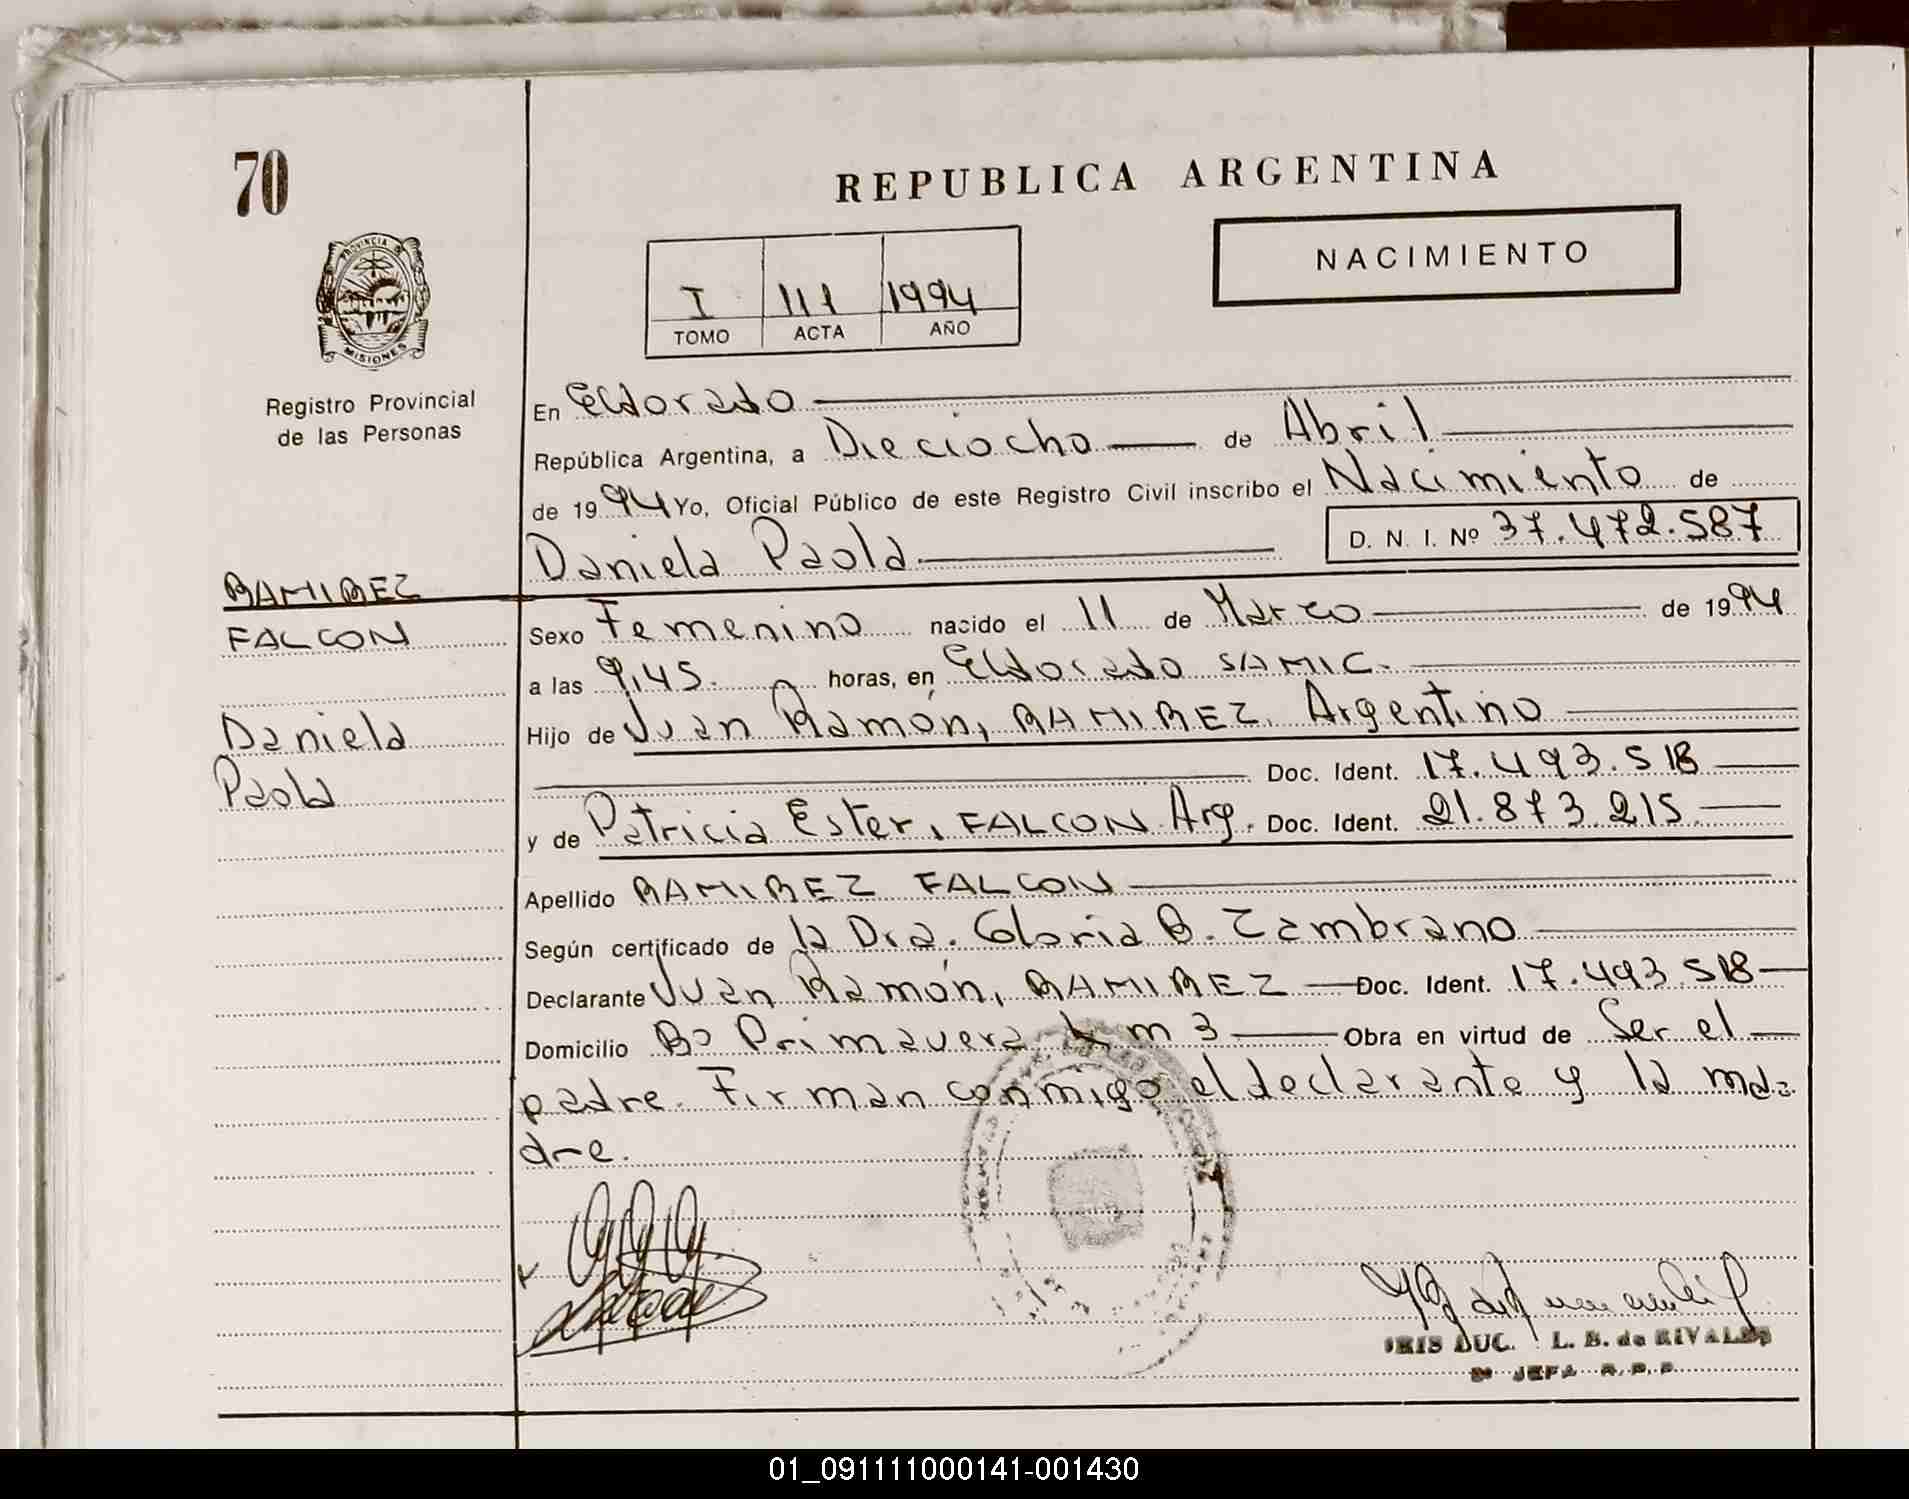 70
REPUBLICA ARGENTINA
NACIMIENTO
PROVINCIA
MISIONES
I 111 1994
TOMO ACTA AÑO
Registro Provincial
de las Personas
En Eldorado
República Argentina, a Dieciocho de Abril
de 1994 Yo, Oficial Público de este Registro Civil inscribo el Nacimiento de
Daniela Paola D. N. I. Nº 37.472.587
RAMIREZ
FALCON
Daniela
Paola
Sexo Femenino nacido el 11 de Marzo de 1994
a las 9,45. horas, en Eldorado SAMIC.
Hijo de Juan Ramón, RAMIREZ. Argentino
Doc. Ident. 17.493.518
y de Patricia Ester, FALCON Arg. Doc. Ident. 21.873.215
Apellido RAMIREZ FALCON
Según certificado de la Dra. Gloria B. Zambrano
Declarante Juan Ramón, RAMIREZ Doc. Ident. 17.493.518
Domicilio Bº Primavera km 3 Obra en virtud de Ser el
padre. Firman conmigo el declarante y la ma=
dre.
L. B. de RIVALES
JEFA R.P.P.
01_091111000141-001430